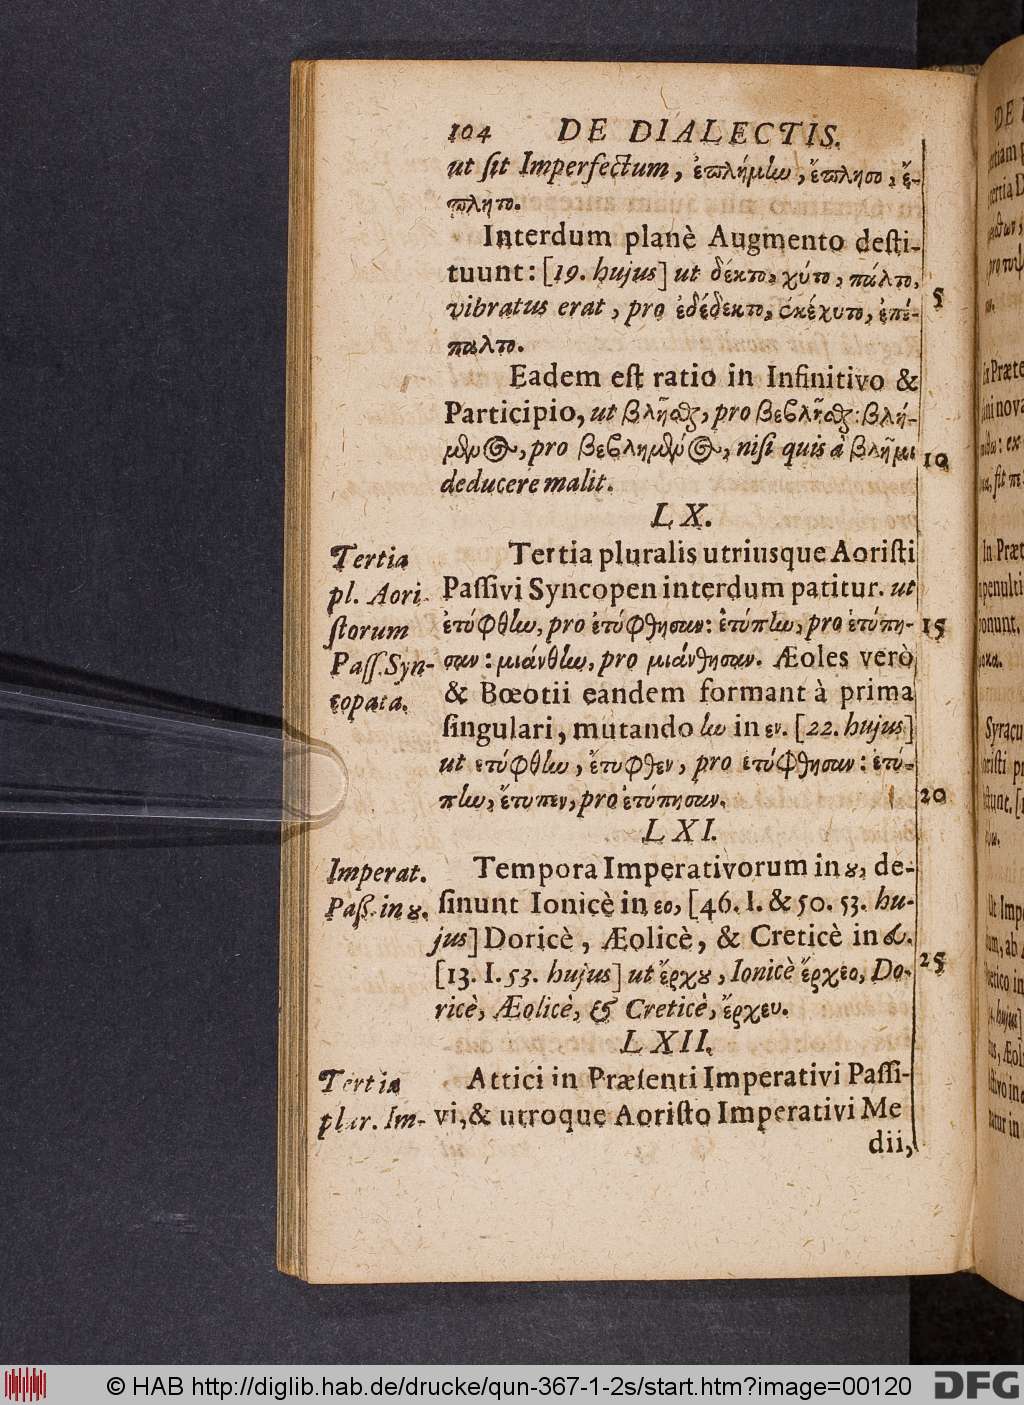 104 DE DIALECTIS.
ut ſit Imperfectum, ἐπλήμίω, ἔπλησο, ἔ-
πλητο.
Interdum planè Augmento deſti-
tuunt: [19. hujus] ut δέκτο, χύτο, πάλτο,
vibratus erat, pro ἐδέδεκτο, ἐκέχυτο, ἐπέ- 5
παλτο.
Eadem eſt ratio in Infinitivo &
Participio, ut βλῆσθαι, pro βεβλῆσθαι: βλή-
μενος, pro βεβλημένος, niſi quis à βλῆμι 10
deducere malit.
LX.
Tertia pl. Aori-
ſtorum
Paſſ. Syn-
copata.
Tertia pluralis utriusque Aoriſti
Paſſivi Syncopen interdum patitur. ut
ἐτύφθην, pro ἐτύφθησαν: ἐτύπην, pro ἐτύπη- 15
σαν: μιάνθην, pro μιάνθησαν. Æoles verò
& Bœotii eandem formant à prima
ſingulari, mutando ην in εν. [22. hujus]
ut ετύφθην, ἔτυφθεν, pro ετύφθησαν: ετύ-
πην, ἔτυπεν, pro ἐτύπησαν. 20
LXI.
Imperat.
Paſſ. in ȣ.
Tempora Imperativorum in ȣ, de-
ſinunt Ionicè in εο, [46. I. & 50. 53. hu-
jus] Doricè, Æolicè, & Creticè in ευ.
[13. I. 53. hujus] ut ἔρχȣ, Ionicè ἔρχεο, Do- 25
ricè, Æolicè, & Creticè, ἔρχευ.
LXII.
Tertia
plur. Im-
Attici in Præſenti Imperativi Paſſi-
vi, & utroque Aoriſto Imperativi Me
dii,
© HAB http://diglib.hab.de/drucke/qun-367-1-2s/start.htm?image=00120 DFG